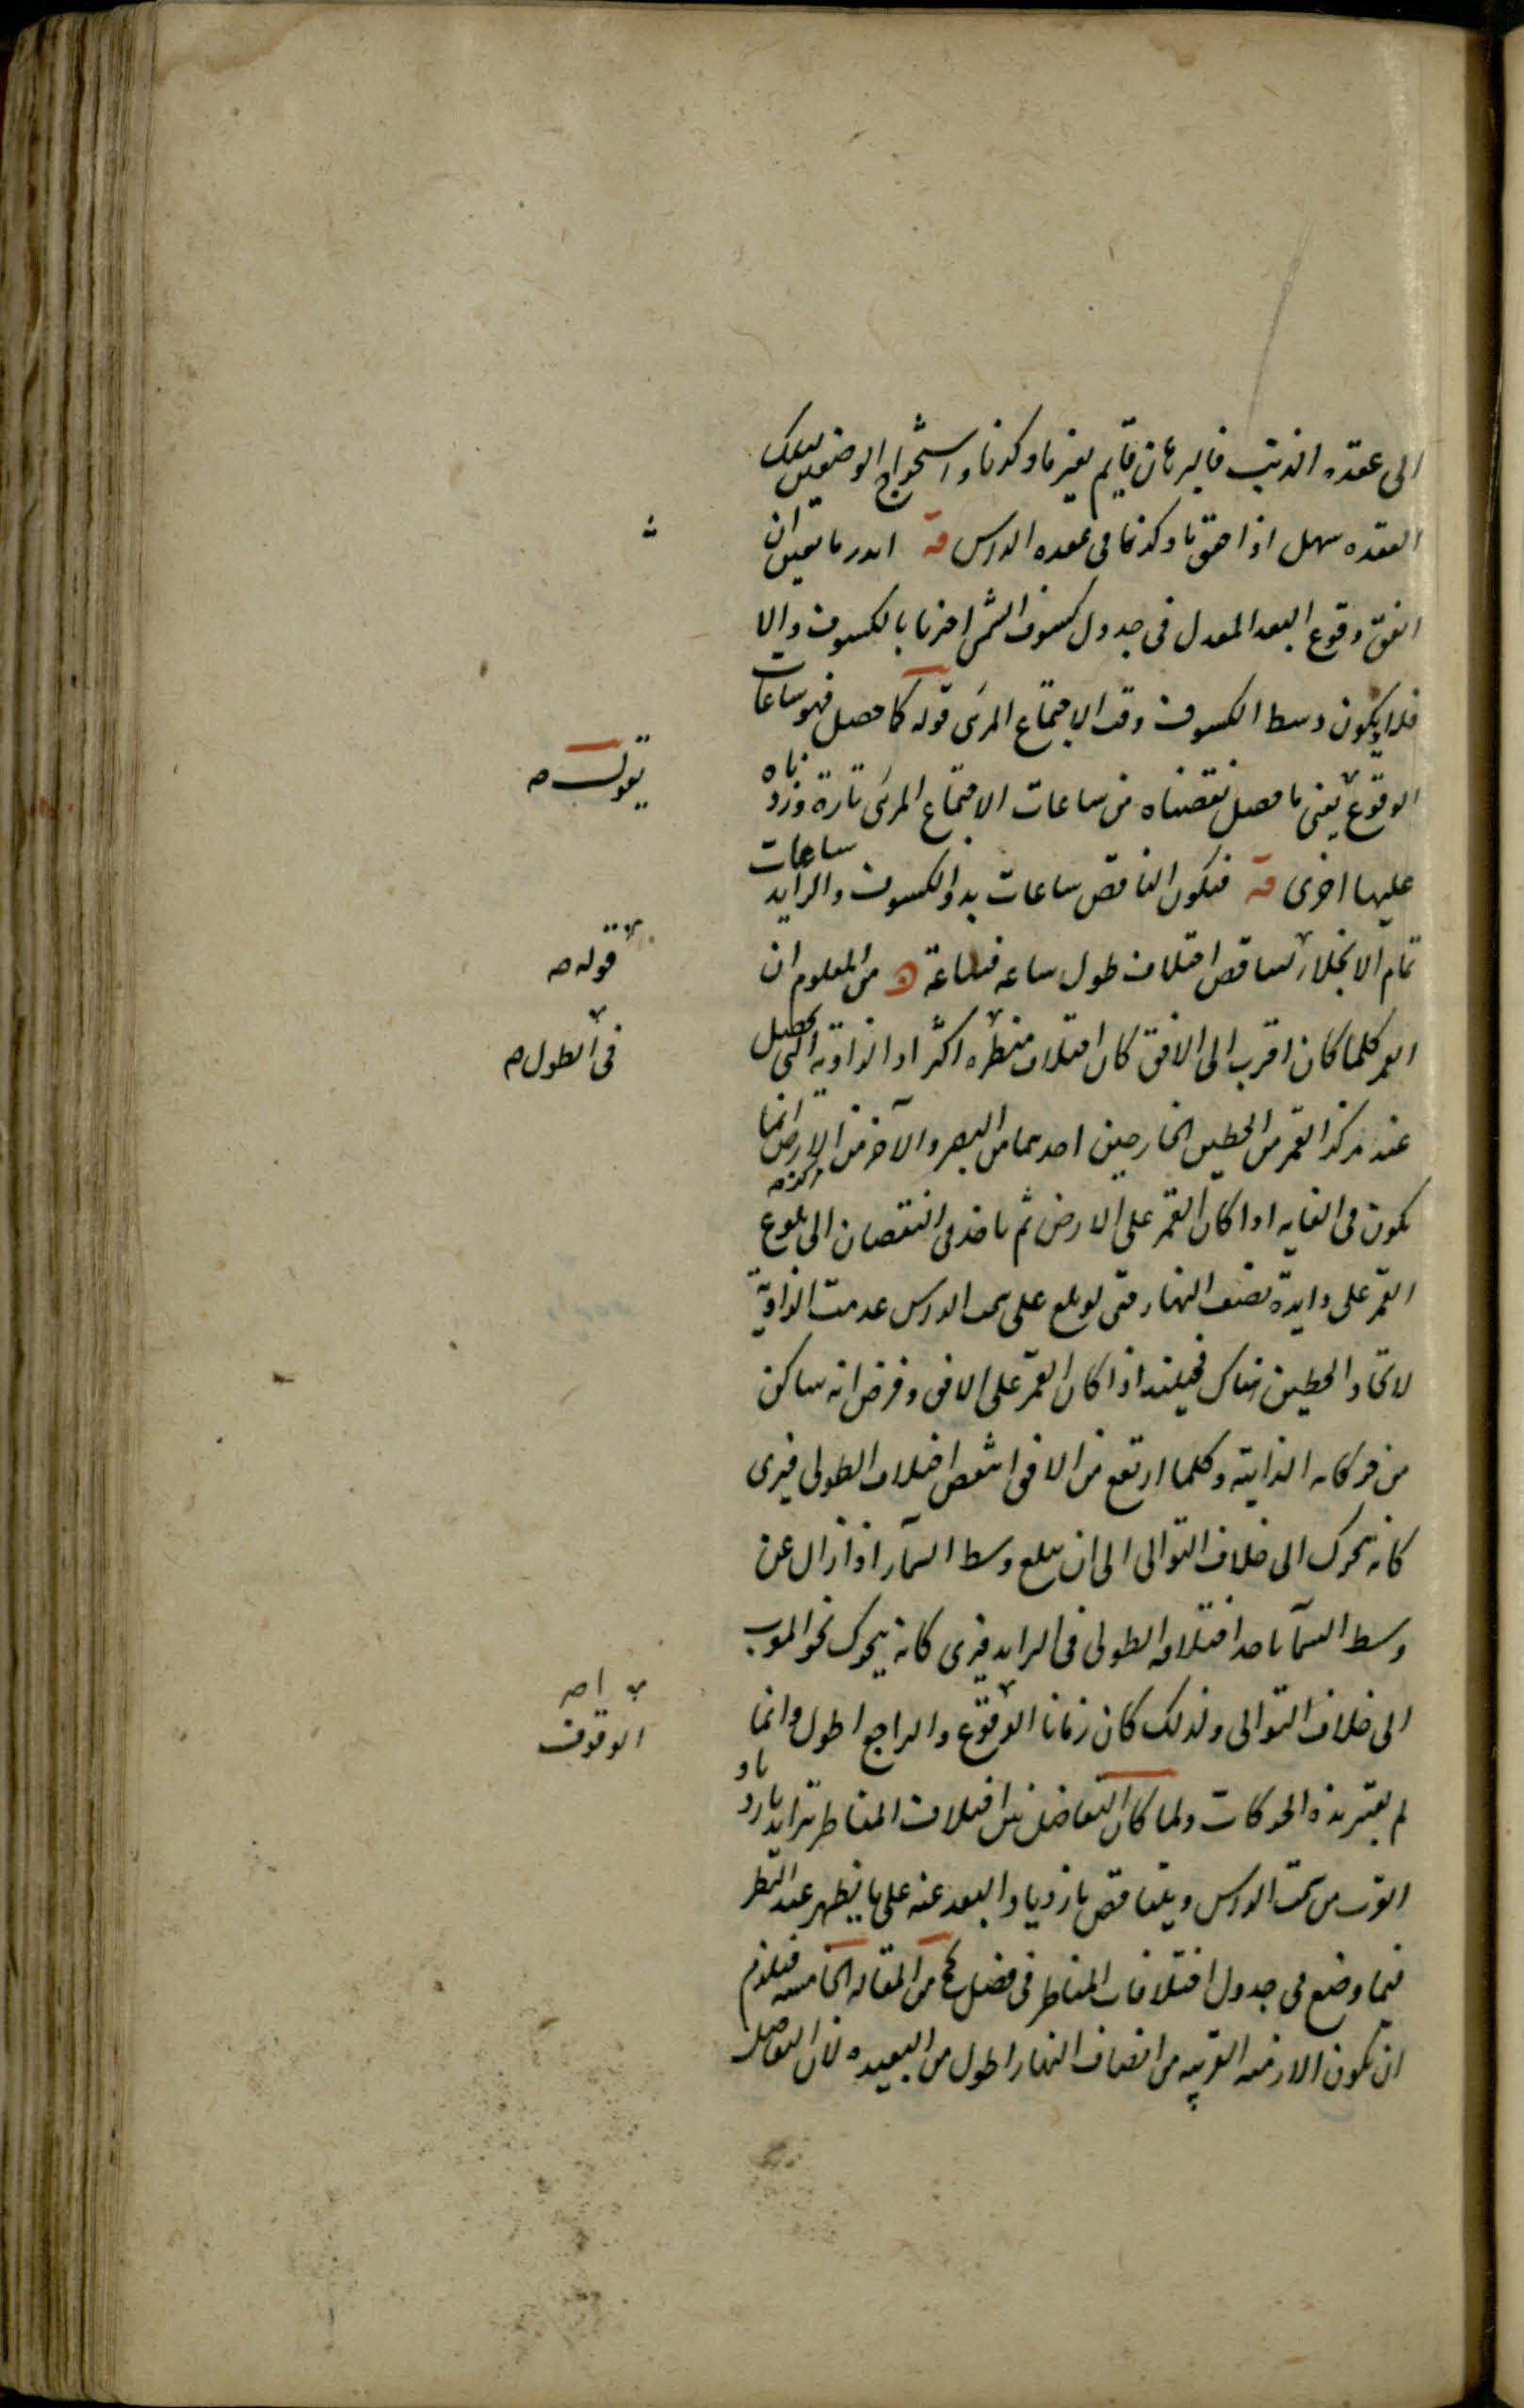 الى عقده الذنب فالبرهان قايم بغير ما ذكرنا واستخراج الوضعين لتلك
العقده سهل اذا حقق ما ذكرنا فى عقده الراس قه
اتفق وقوع البعد المعدل فى جدول كسوف الشمس اخبرنا بالكسوف والا
فلا ويكون وسط الكسوف وقت الاجتماع المرئى قوله كما حصل فهو ساعات
الوقوع يعنى ما حصل نقصناه من ساعات الاجتماع المرئى تارة وزدناه
عليها اخرى قه فيكون الناقص ساعات بدو الكسوف والزايد ساعات
تمام الانجلاء لتناقص اختلاف طول ساعه فساعة من المعلوم ان
القمر كلما كان اقرب الى الافق كان اختلاف منظره اكثر اذ الزاوية التى تحصل
عند مركز القمر من الخطين الخارجين احدهما من البصر والآخر من مركز الارض انما
يكون فى الغايه اذا كان القمر على الارض ثم ياخذ فى النقصان الى بلوغ
القمر على دايرة نصف النهار حتى لو بلغ على سمت الراس عدمت الزاوية
لاتحاد الخطين هناك فحينئذ اذا كان القمر على الافق وفرض انه ساكن
من حركاته الذاتية وكلما ارتفع من الافق انتقص اختلاف الطولى فيرى
كانه تحرك الى خلاف التوالى الى ان يبلغ وسط السمآء اذا زال عن
وسط السمآ ياخذ اختلافه الطولى فى الزايد فيرى كانه يتحرك نحو المغرب
الى خلاف التوالى ولذلك كان زمانا الوقوع والراجع اطول وانما
لم يعتبر هذه الحركات ولما كان التفاضل بين اختلاف المناظر تتزايد بازدياد
القرب من سمت الراس ويتناقص بازدياد البعد عنه على ما يظهر عند النظر
فيما وضع فى جدول اختلافات المناظر فى فصل من المقاله الخامسه فيلزم
ان تكون الازمنه القريبه من انصاف النهار اطول من البعيده لان التفاضل
يقول صه
قوله صه
فى الطول صه
الوقوف